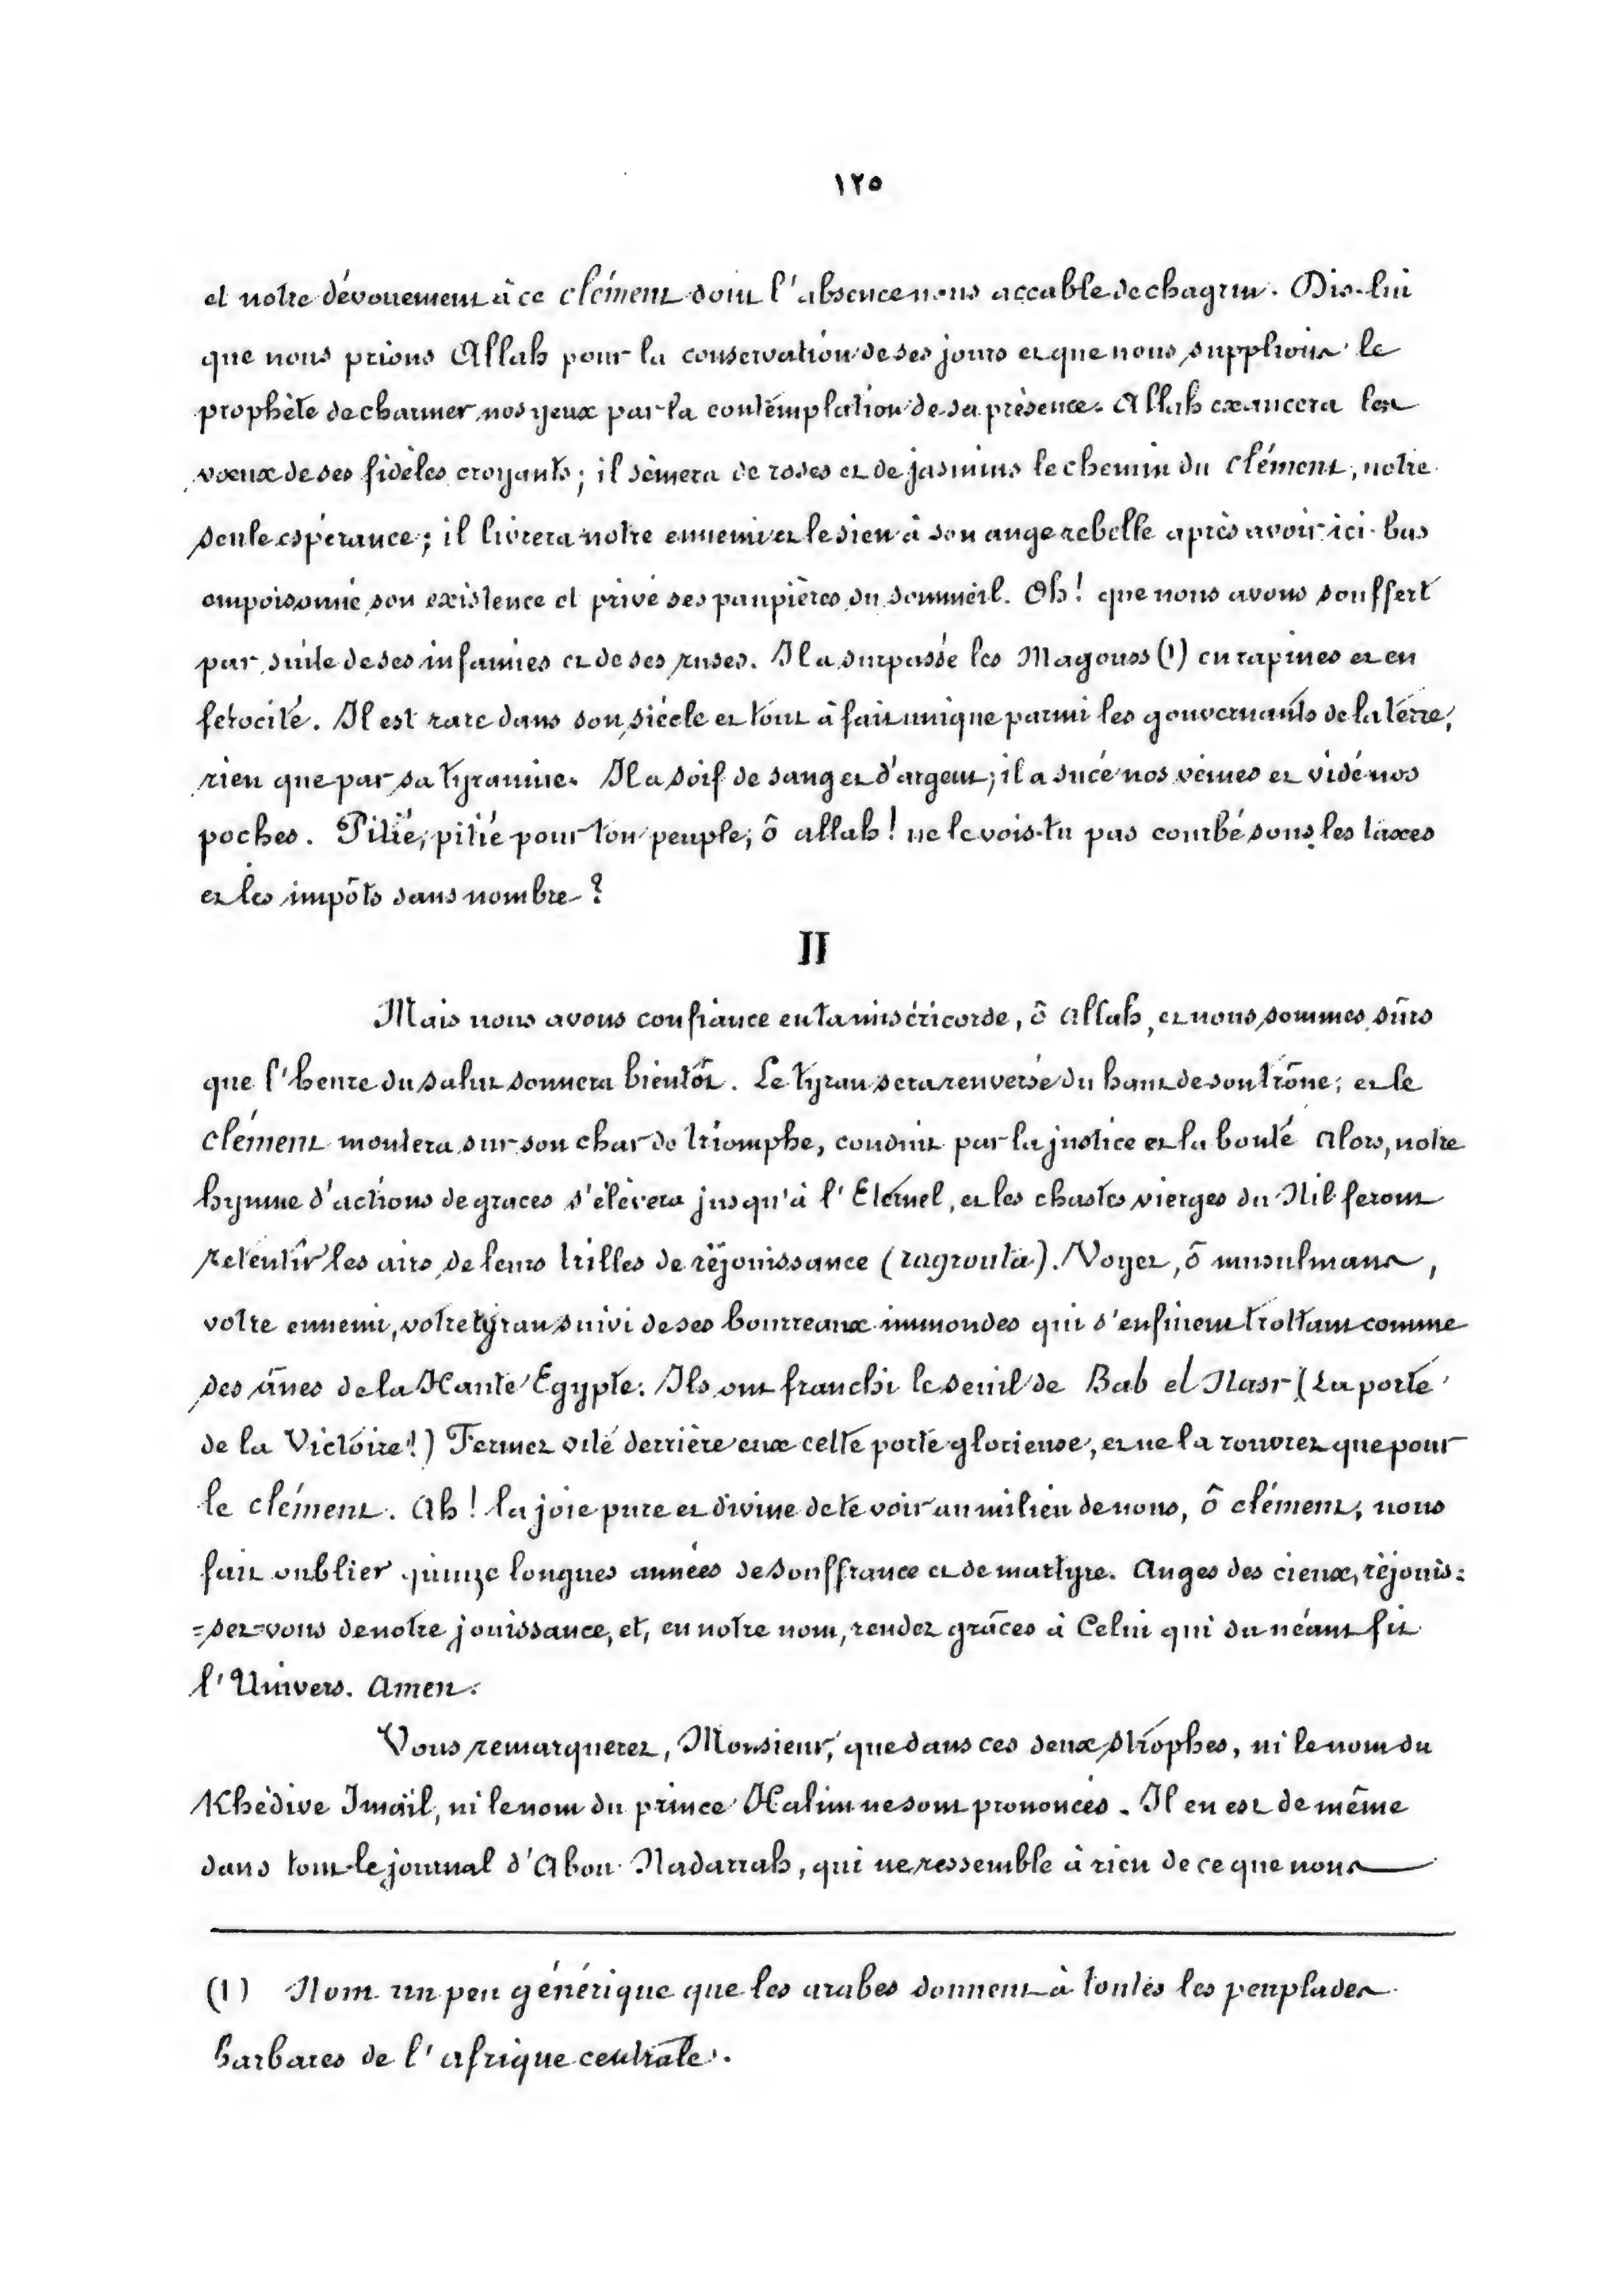 ١٢٥
et notre dévouement à ce clément dont l'absence nous accable de chagrin. Dis-lui
que nous prions Allah pour la conservation de ses jours et que nous supplions le
prophète de charmer nos yeux par la contemplation de sa présence. Allah exaucera les
vœux de ses fidèles croyants; il sèmera de roses et de jasmins le chemin du clément, notre
seule espérance; il livrera notre ennemi et le sien à son ange rebelle après avoir ici-bas
empoisonné son existence et privé ses paupières du sommeil. Oh! que nous avons souffert
par suite de ses infamies et de ses ruses. Il a surpassé les Magouss (1) en rapines et en
férocité. Il est rare dans son siècle et tout à fait unique parmi les gouvernants de la terre,
rien que par sa tyrannie. Il a soif de sang et d'argent; il a sucé nos veines et vidé nos
poches. Pitié, pitié pour ton peuple, ô allah! ne le vois-tu pas courbé sous les taxes
et les impôts sans nombre?
II
Mais nous avons confiance en ta miséricorde, ô Allah, et nous sommes sûrs
que l'heure du salut sonnera bientôt. Le tyran sera renversé du haut de son trône; et le
clément montera sur son char de triomphe, conduit par la justice et la bonté Alors, notre
hymne d'actions de graces s'élèvera jusqu'à l'Eternel, et les chastes vierges du Nil feront
retentir les airs de leurs trilles de réjouissance (ragrouta). Voyez, ô musulmans,
votre ennemi, votre tyran suivi de ses bourreaux immondes qui s'enfuient trottant comme
des ânes de la Haute Egypte. Ils ont franchi le seuil de Bab el Nasr (La porte
de la Victoire!) Fermez vite derrière eux cette porte glorieuse, et ne la rouvrez que pour
le clément. Ah! la joie pure et divine de te voir au milieu de nous, ô clément, nous
fait oublier quinze longues années de souffrance et de martyre. Anges des cieux, réjouis=
=sez-vous de notre jouissance, et, en notre nom, rendez grâces à Celui qui du néant fit
l'Univers. Amen.
Vous remarquerez, Monsieur, que dans ces deux strophes, ni le nom du
Khédive Imaïl, ni le nom du prince Halim ne sont prononcés. Il en est de même
dans tout le journal d'Abou Nadarrah, qui ne ressemble à rien de ce que nous
(1) Nom un peu générique que les arabes donnent à toutes les peuplades
barbares de l'afrique centrale.